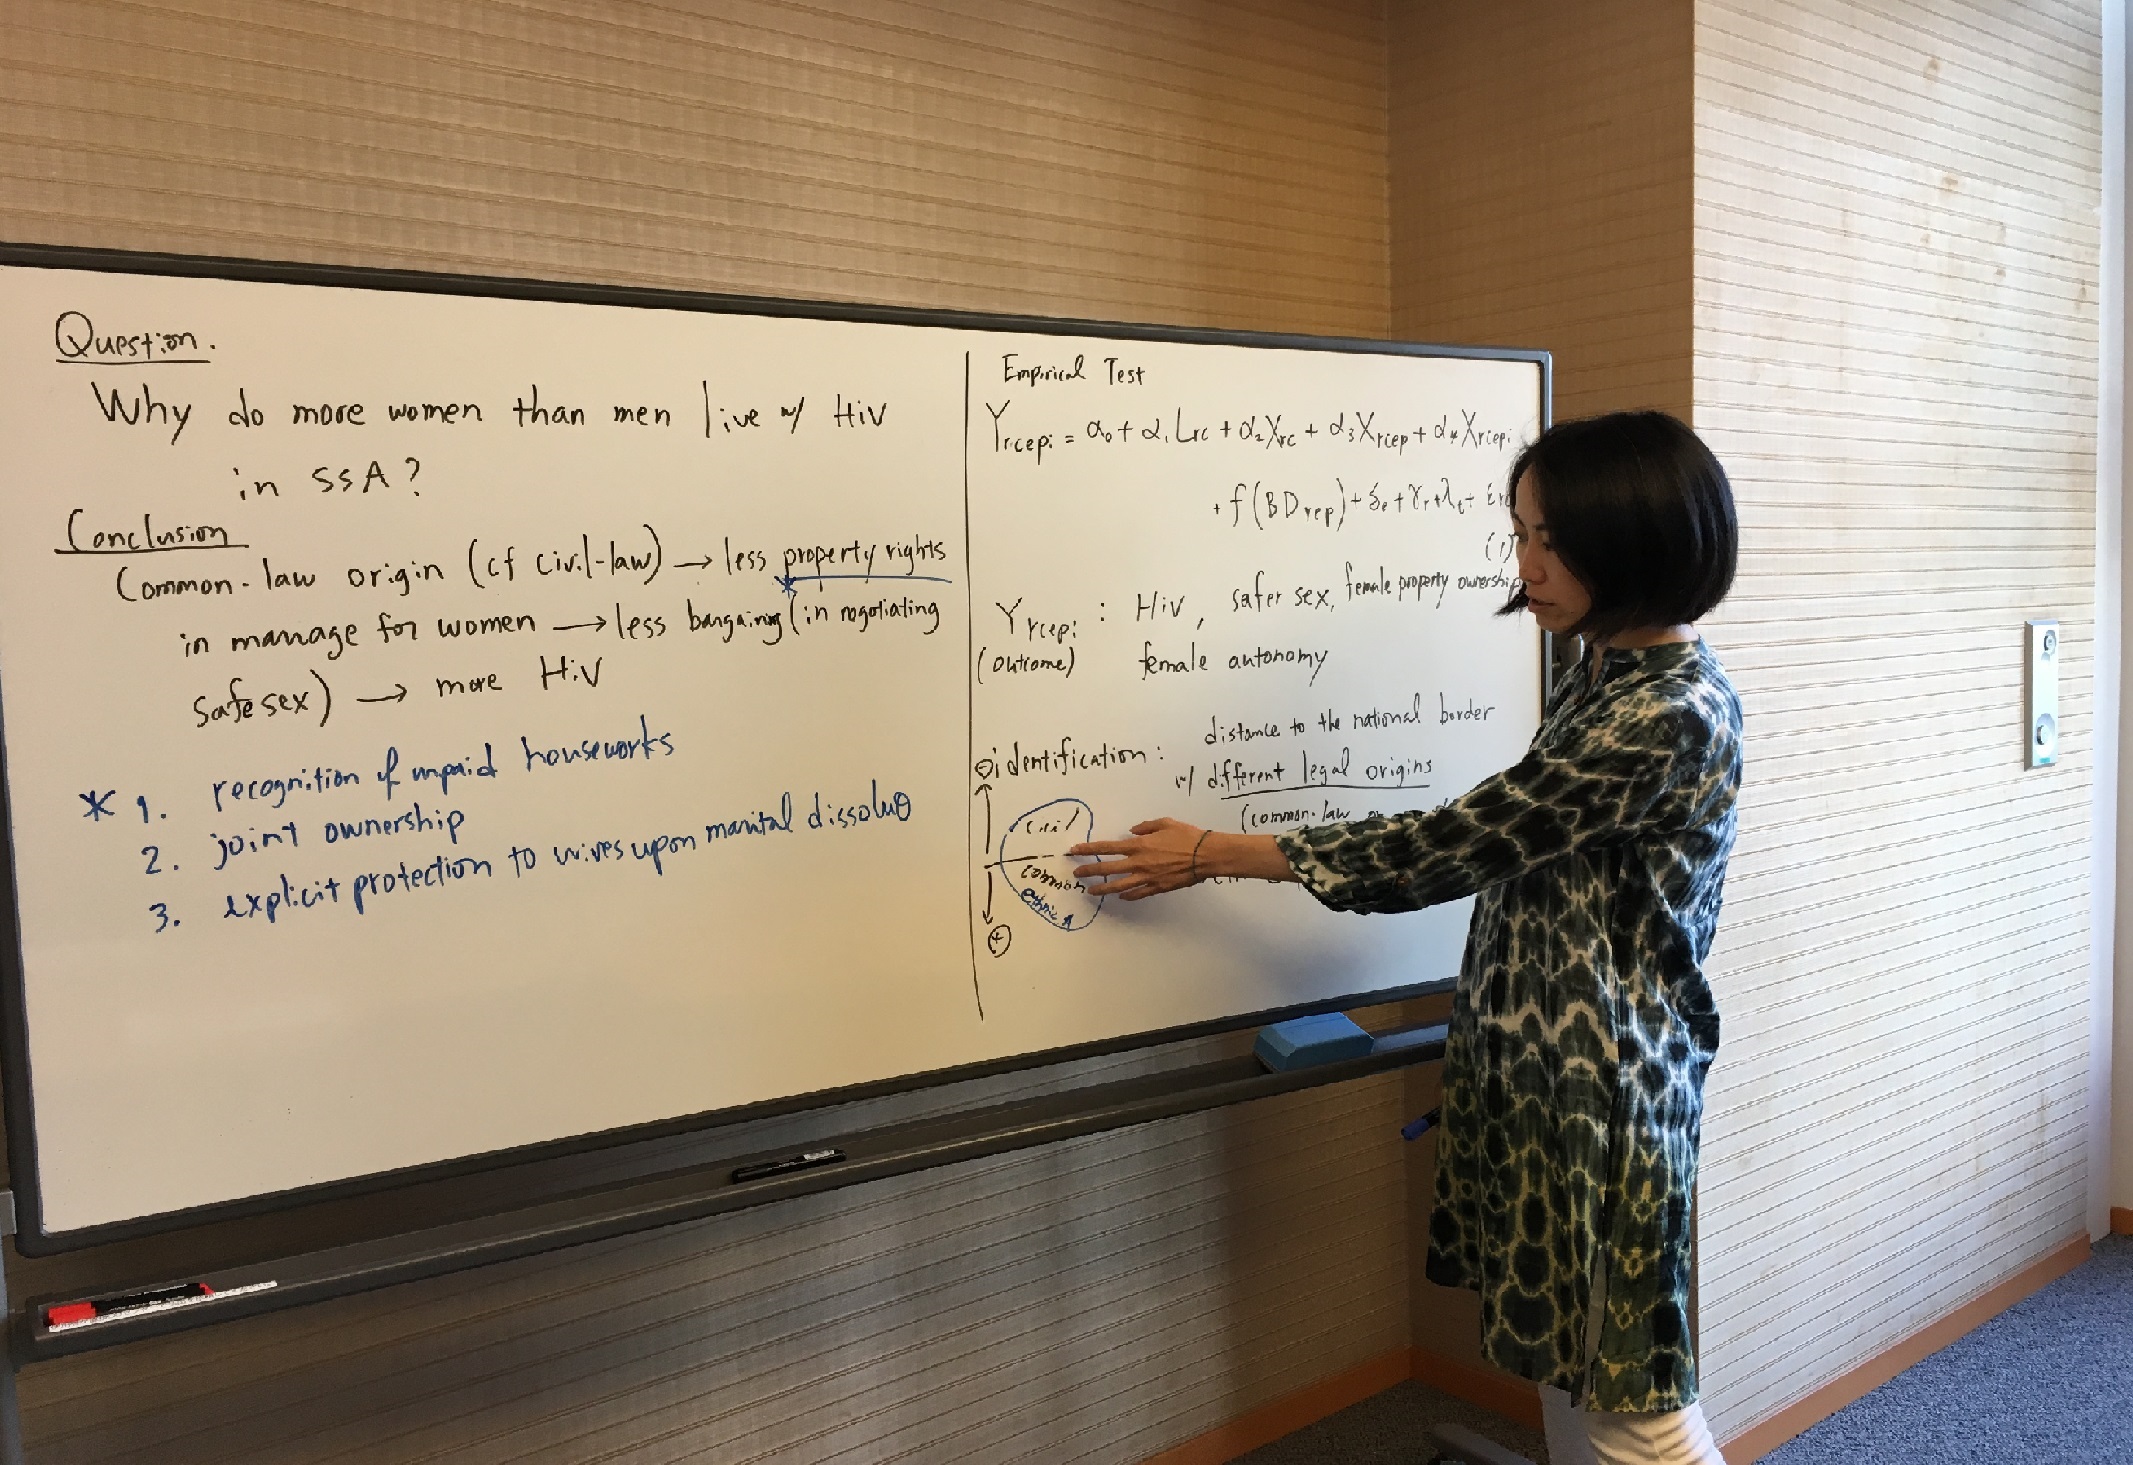 Question.
Why do more women than men live w/ HiV
in SSA?
Conclusion
Common-law origin (cf civil-law) → less property rights
*
in manage for women → less bargaining (in negotiating
safe sex) → more HiV
* 1. recognition of unpaid houseworks
2. joint ownership
3. explicit protection to wives upon marital
Empirical Test
Yrcepi = α0 + α1 Lrc + α2 Xrc + α3 Xrcep + α4 Xrcepi
+ f(BDrep) + δe + γr + λt +
(1)
Yrcepi : HiV, safer sex, female property ownership
(outcome) female autonomy
identification : distance to the national border
w/ different legal origins
(common-law
civil
common
ethnic A
*